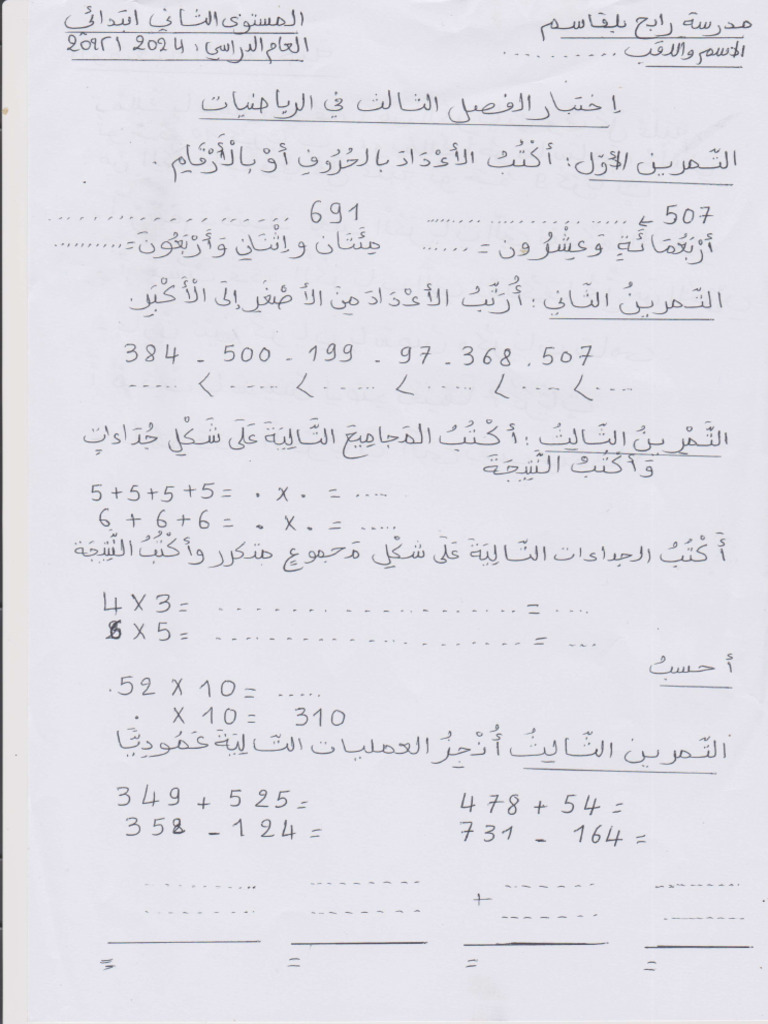 مدرسة رابح بلقاسم المستوى الثاني ابتدائي
الاسم واللقب .......... العام الدراسي: 2024
إختبار الفصل الثالث في الرياضيات
التمرين الأوّل: أكْتُبُ الأعْدَادَ بالحُرُوفِ أوْ بِالْأَرْقَامِ .
507 ← .............................. 691 ..............................
أرْبَعُمَائَةٍ وَعِشْرُون = ....... مِئَتَان و اِثْنَانِ وَأَرْبَعُونَ = ..........
التَّمرينُ الثَّاني: أُرَتِّبُ الأعْدَادَ مِنَ الأصْغَرِ إلَى الْأَكْبَرِ.
384 - 500 - 199 - 97 - 368 . 507
..... < ..... < ..... < ..... < ..... < .....
التَّمْرِينُ الثَّالِثُ: أكْتُبُ المَجاميعَ التَّالِيَةَ عَلَى شَكْلِ جُدَاءَاتٍ
وَأكْتُبُ النَّتِيجَةَ
5+5+5+5= . x . = .....
6 + 6+6 = . x . = .....
أَكْتُبُ الجداءات التَّالِيَةَ عَلَى شكْلِ مَجموعٍ متكرر وأكْتُبُ النَّتِيجَة
4 X 3 = .................... = ....
X 5 = .................... = ...
أحسبُ
52 X 10 = .....
. X 10 = 310
التَّمرين الثَّالِثُ أُنْجِزُ العمليات التَّالِيَةَ عَمُودِيًّا
349 + 525 = 478 + 54 =
358 - 124 = 731 - 164 =
.......... .......... + .......... ..........
.......... .......... .......... ..........
= = = =